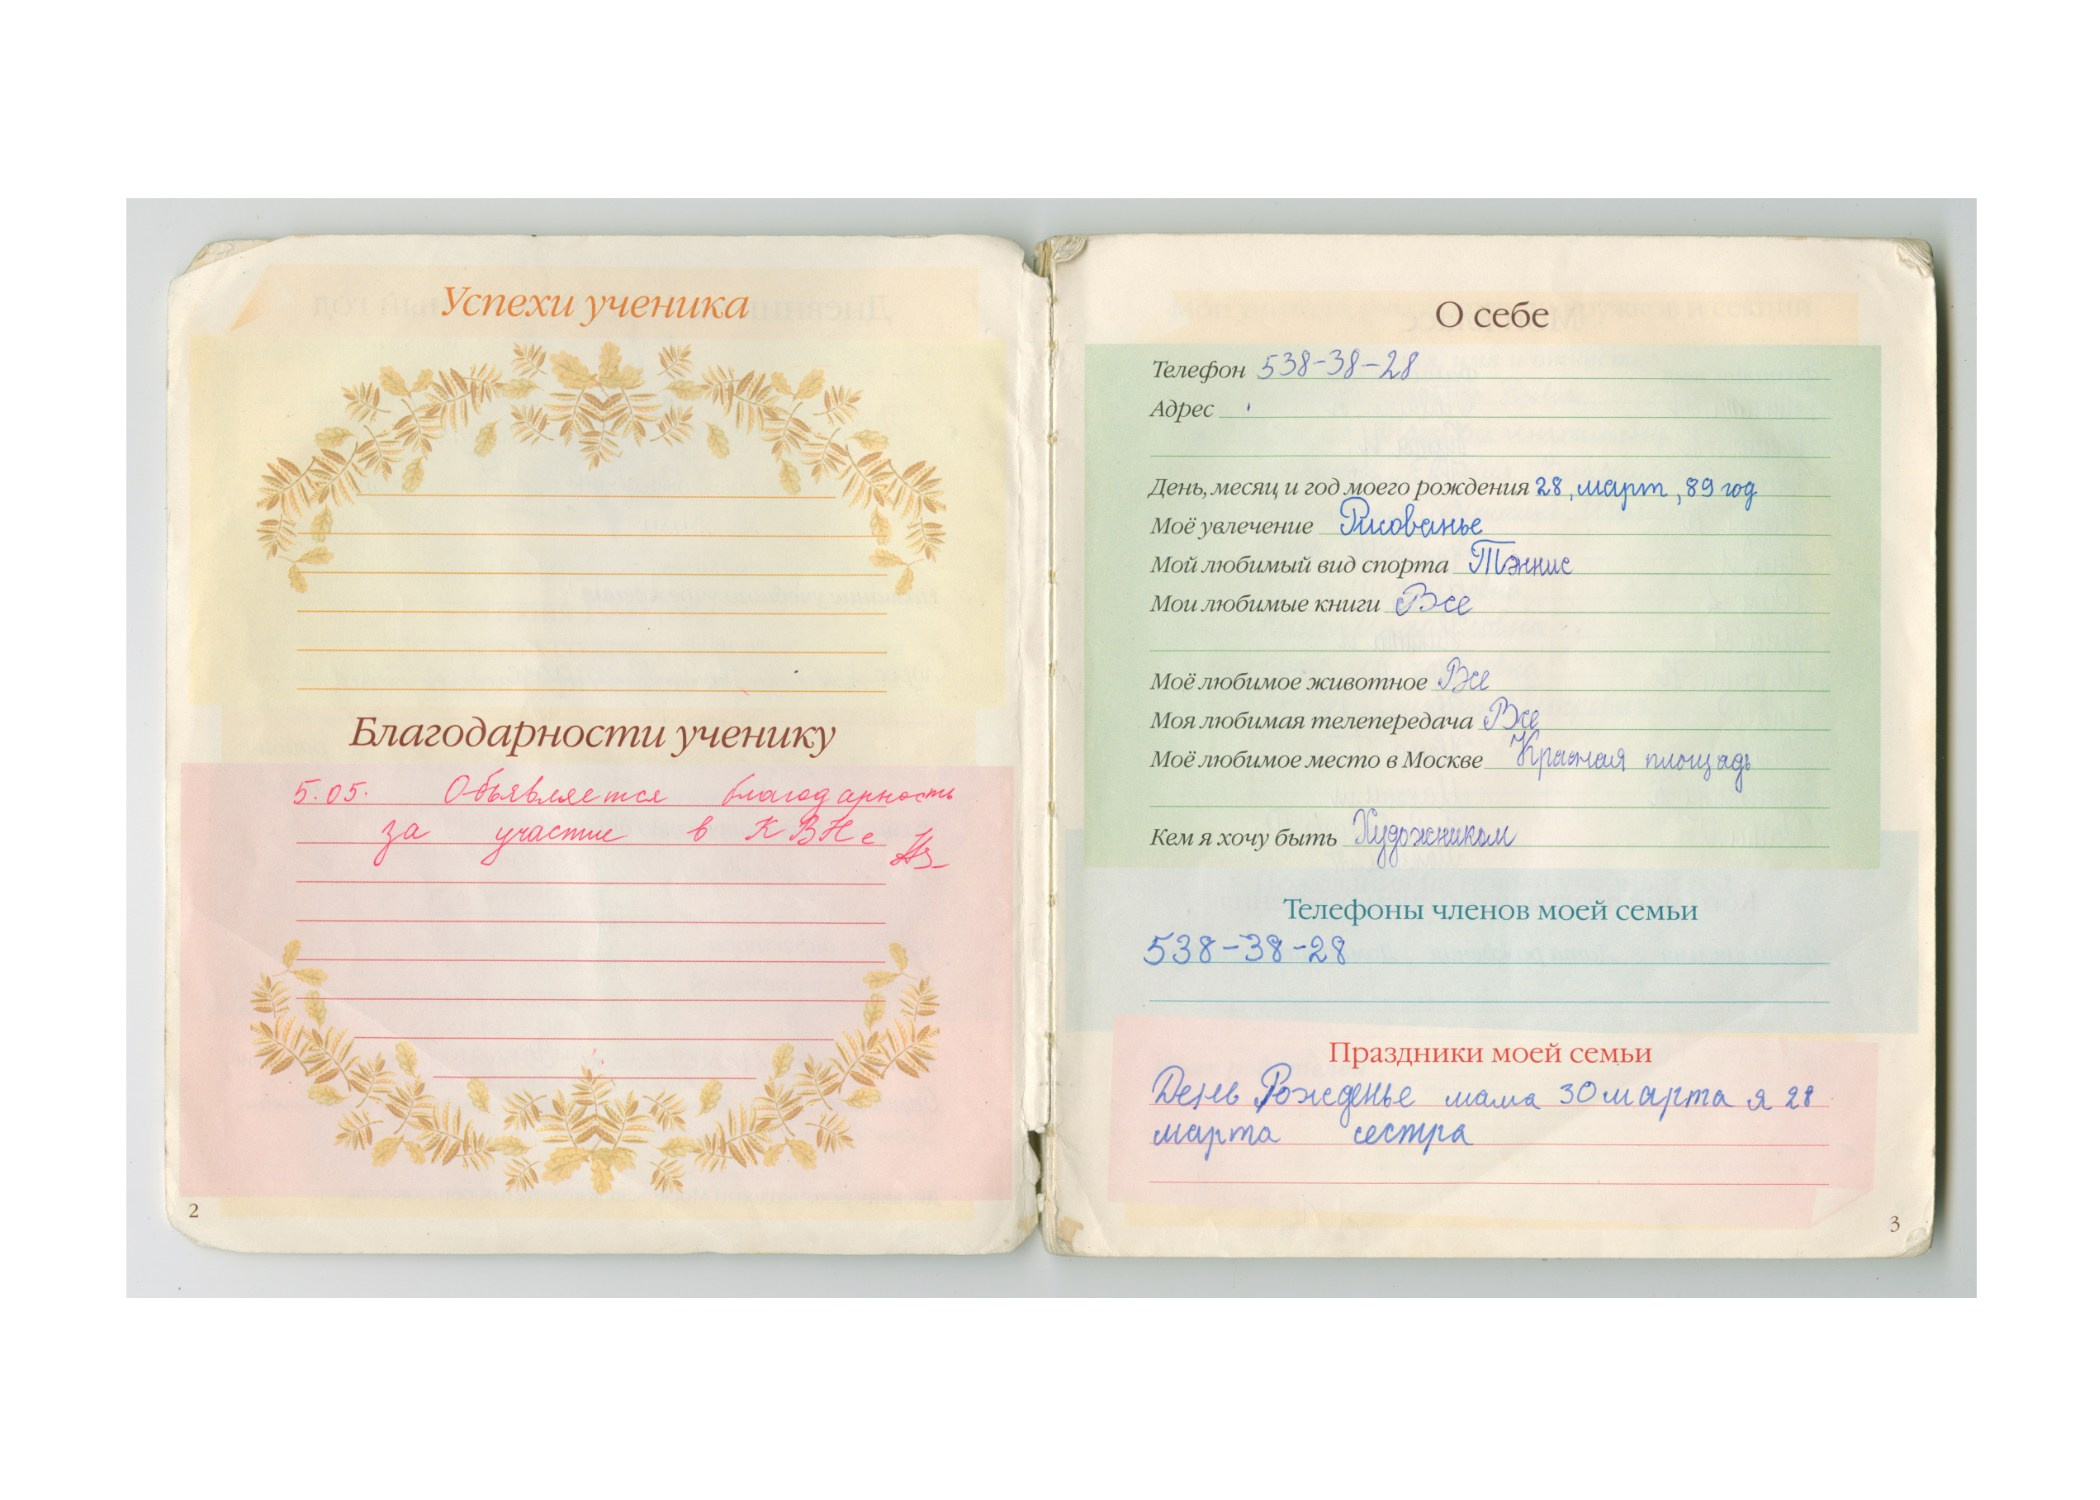 Успехи ученика
Благодарности ученику
5.05. Объявляется благодарность
за участие в КВНе
2
О себе
Телефон 538-38-28
Адрес
День, месяц и год моего рождения 28, март, 89 год
Моё увлечение Рисованье
Мой любимый вид спорта Тэннис
Мои любимые книги Все
Моё любимое животное Все
Моя любимая телепередача Все
Моё любимое место в Москве Красная площадь
Кем я хочу быть Художником
Телефоны членов моей семьи
538-38-28
Праздники моей семьи
День Рожденье мама 30 марта я 28
марта сестра
3